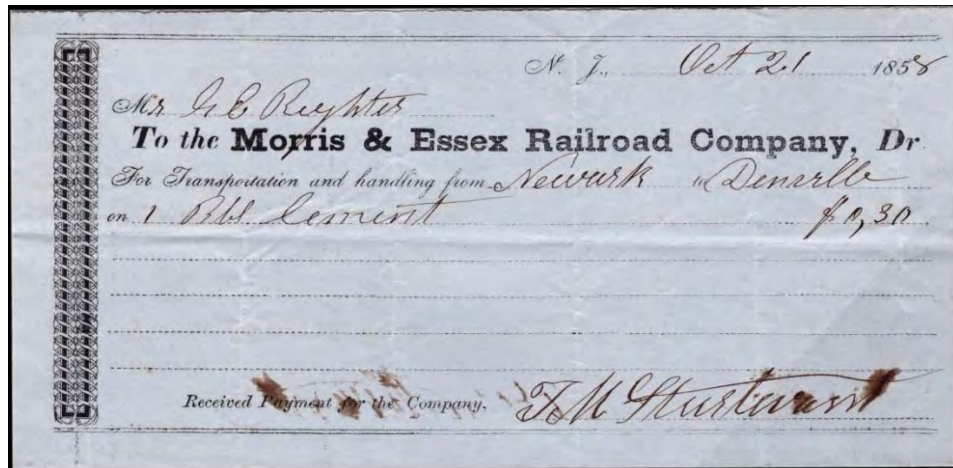 N. J., Oct 21 1858
Mr G E Reyhter
To the Morris & Essex Railroad Company, Dr
For Transportation and handling from Newark to Denville
on 1 Bbl Cement $0,30
Received Payment for the Company, F M Sturtevant